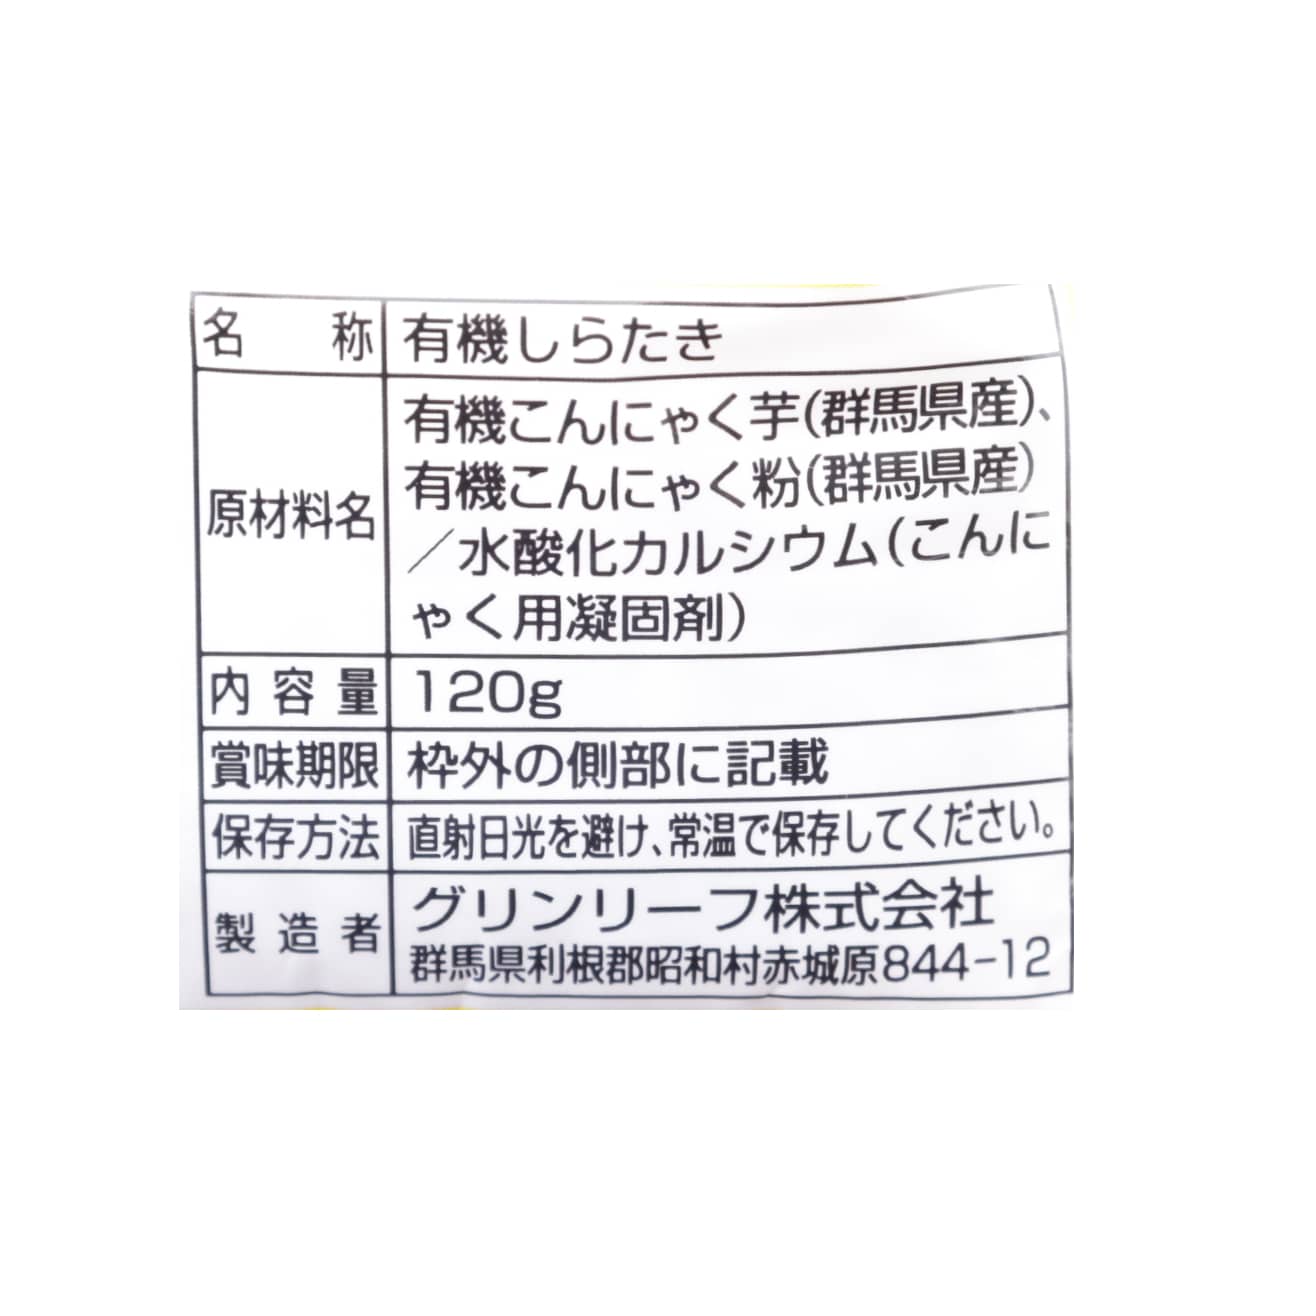 名 称 有機しらたき
原材料名 有機こんにゃく芋(群馬県産)、
有機こんにゃく粉(群馬県産)
／水酸化カルシウム(こんに
ゃく用凝固剤)
内容量 120g
賞味期限 枠外の側部に記載
保存方法 直射日光を避け、常温で保存してください。
製造者 グリンリーフ株式会社
群馬県利根郡昭和村赤城原844-12